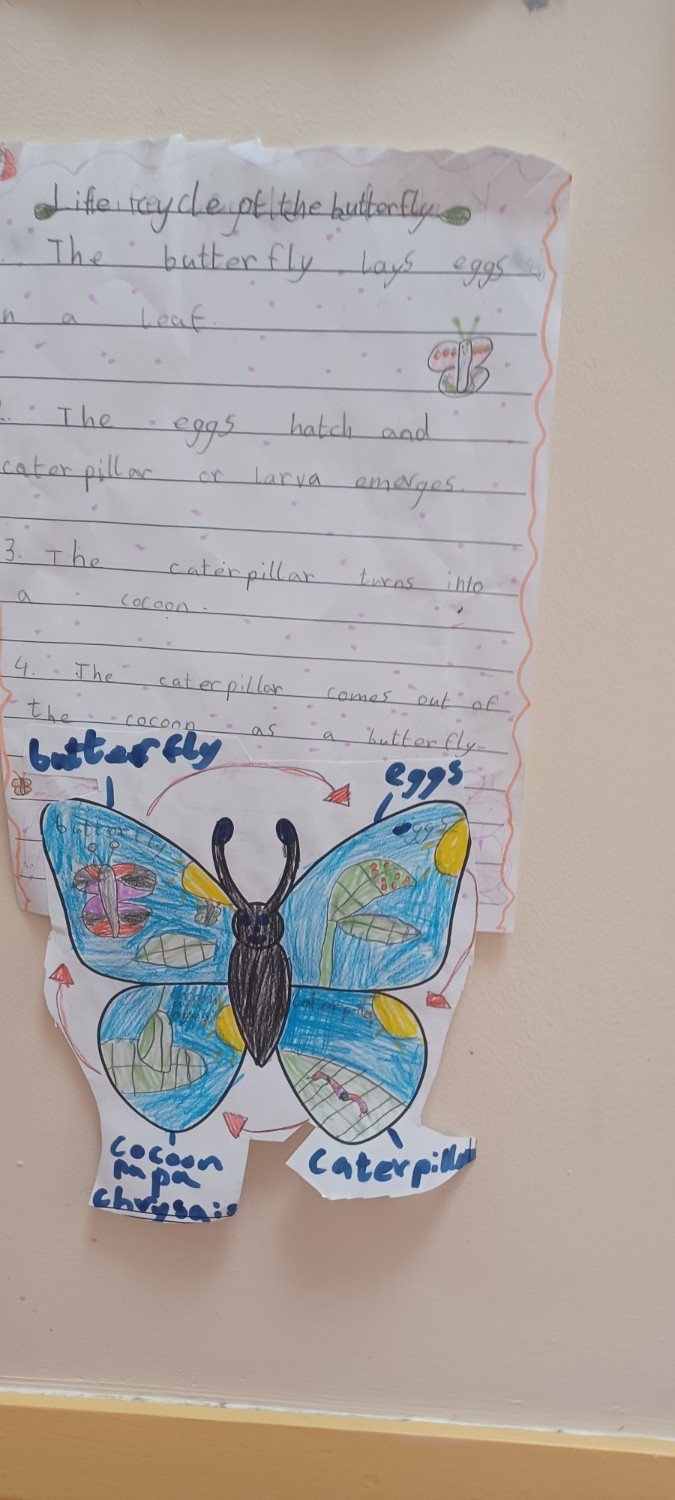 Life cycle of the butterfly
The butterfly lays eggs
n a leaf.
The eggs hatch and
caterpillar or larva emerges.
3. The caterpillar turns into
a cocoon.
4. The caterpillar comes out of
the cocoon as a butterfly.
butterfly
eggs
butterfly
eggs
cocoon
papa
chrysais
caterpillar